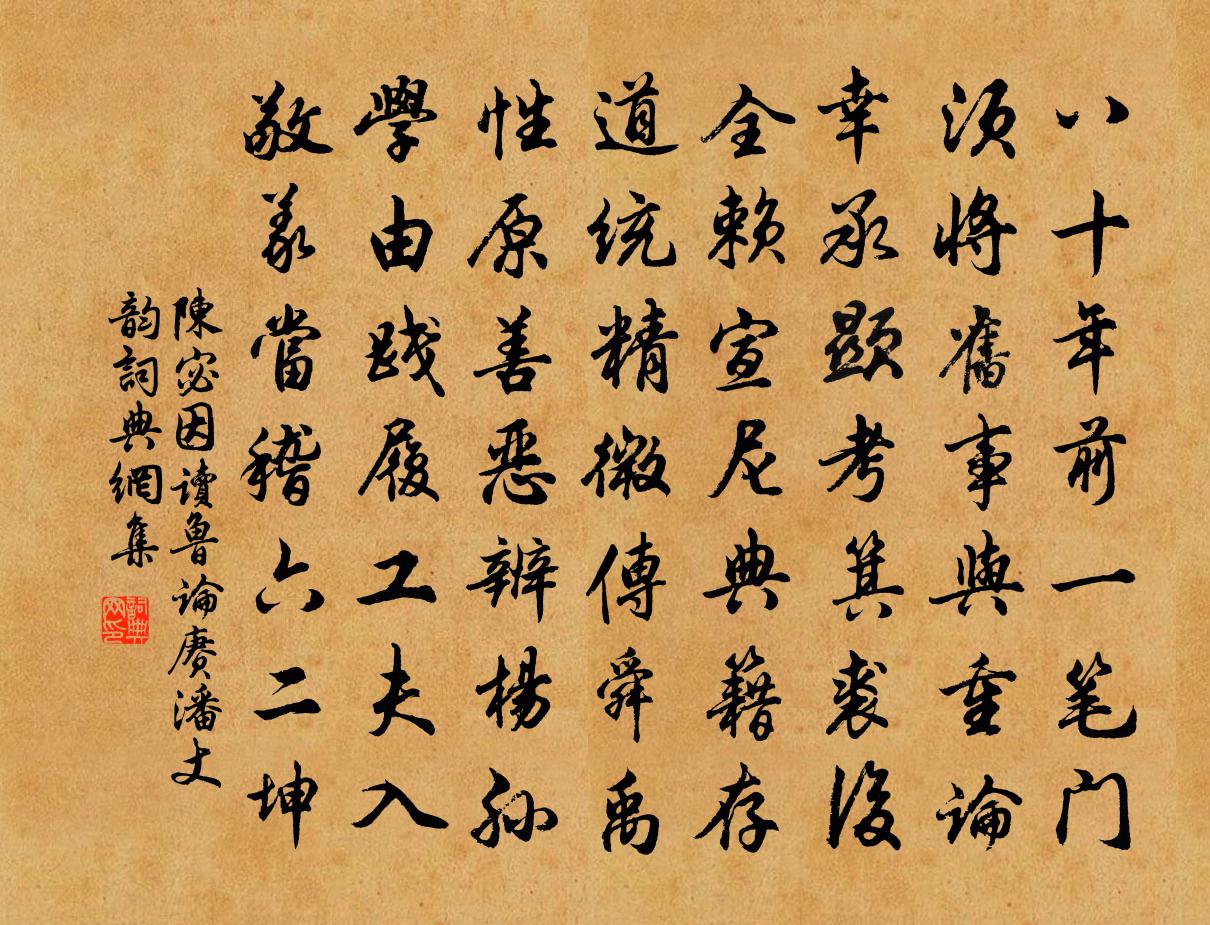 八十年前一笔门
須將舊事與重論
幸承顯考箕裘後
全賴宣尼典籍存
道統精微傳舜禹
性原善惡辨楊孙
學由踐履工夫入
敬義當稽六二坤
陳宓因读鲁論赓潘丈
韵詞典網集
詞典
网印